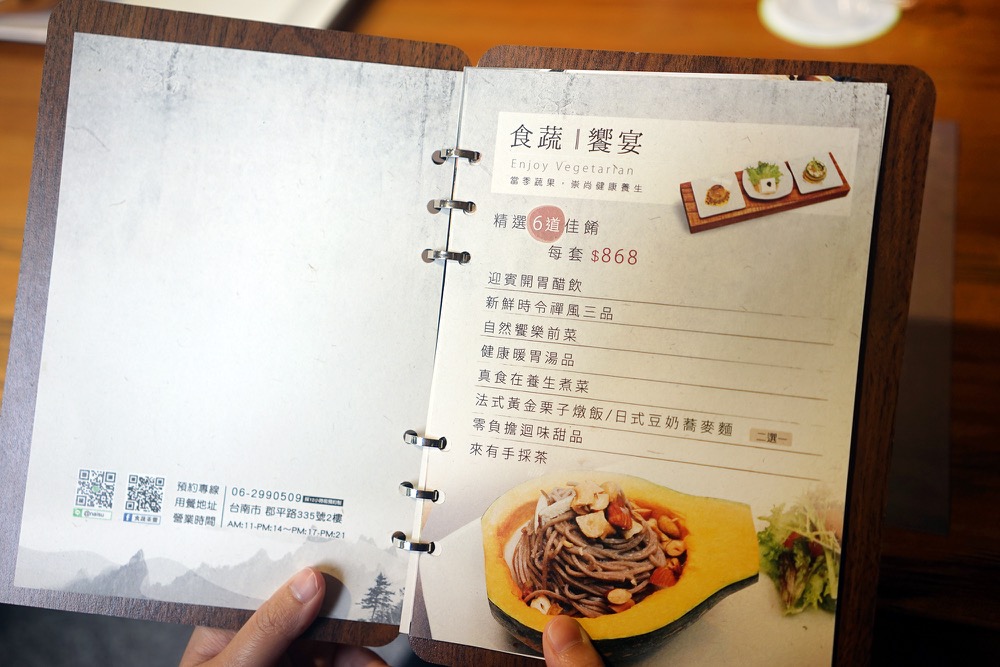 預約專線 06-2990509
用餐地址 台南市 郡平路335號2樓
營業時間 AM:11-PM:14～PM:17-PM:21
食蔬|饗宴
Enjoy Vegetarian
當季蔬果・崇尚健康養生
精選6道佳餚
每套 $868
迎賓開胃醋飲
新鮮時令禪風三品
自然饗樂前菜
健康暖胃湯品
真食在養生煮菜
法式黃金栗子燉飯/日式豆奶蕎麥麵 二選一
零負擔迴味甜品
來有手採茶